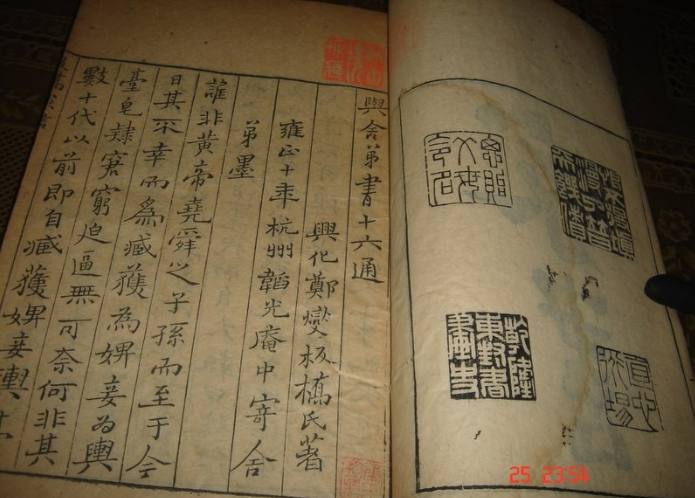 思貽
父母
令名
直心
道場
乾隆
東封書
畫史
與舍弟書十六通
興化鄭燮板橋氏著
雍正十年杭州韜光庵中寄舍
弟墨
誰非黃帝堯舜之子孫而至于今
日其不幸而為臧獲為婢妾為輿
臺皂隸窘窮迫逼無可奈何非其
數十代以前即自臧獲婢妾輿
25 23:54